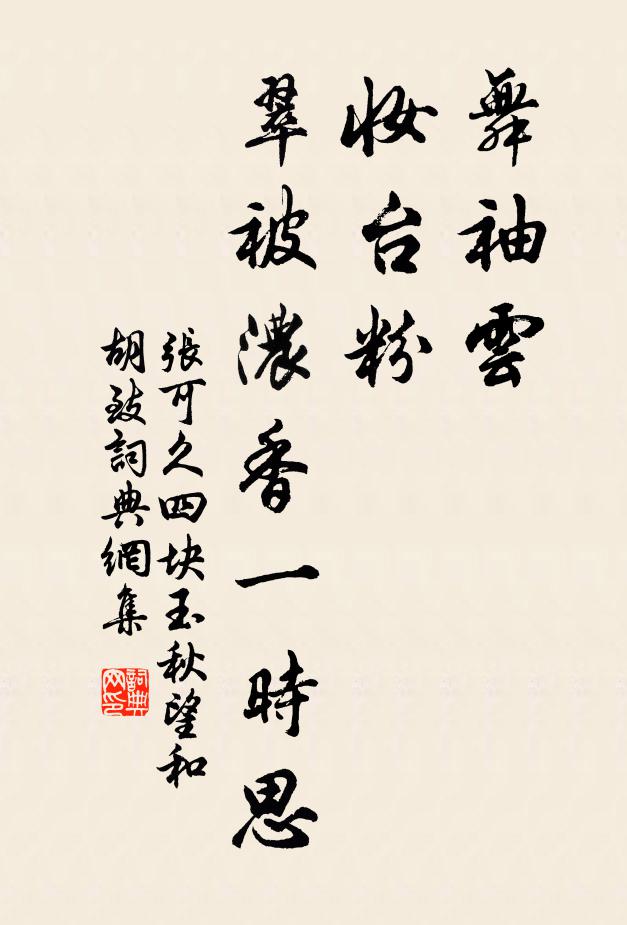 舞袖雲
妝台粉
翠被濃香一時思
張可久四块玉秋望和
胡致詞典網集
詞典網印